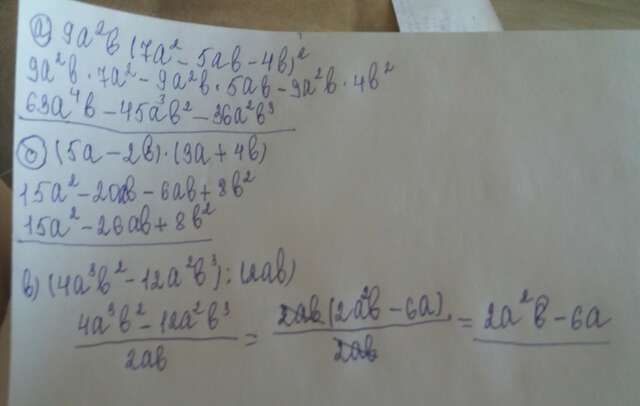 а) 9a²b (7a² - 5ab - 4b)²
9a²b · 7a² - 9a²b · 5ab - 9a²b · 4b²
63a⁴b - 45a³b² - 36a²b³
б) (5a - 2b) · (3a + 4b)
15a² - 20ab - 6ab + 8b²
15a² - 26ab + 8b²
в) (4a³b² - 12a²b³) : (2ab)
4a³b² - 12a²b³ / 2ab = 2ab (2a²b - 6a) / 2ab = 2a²b - 6a